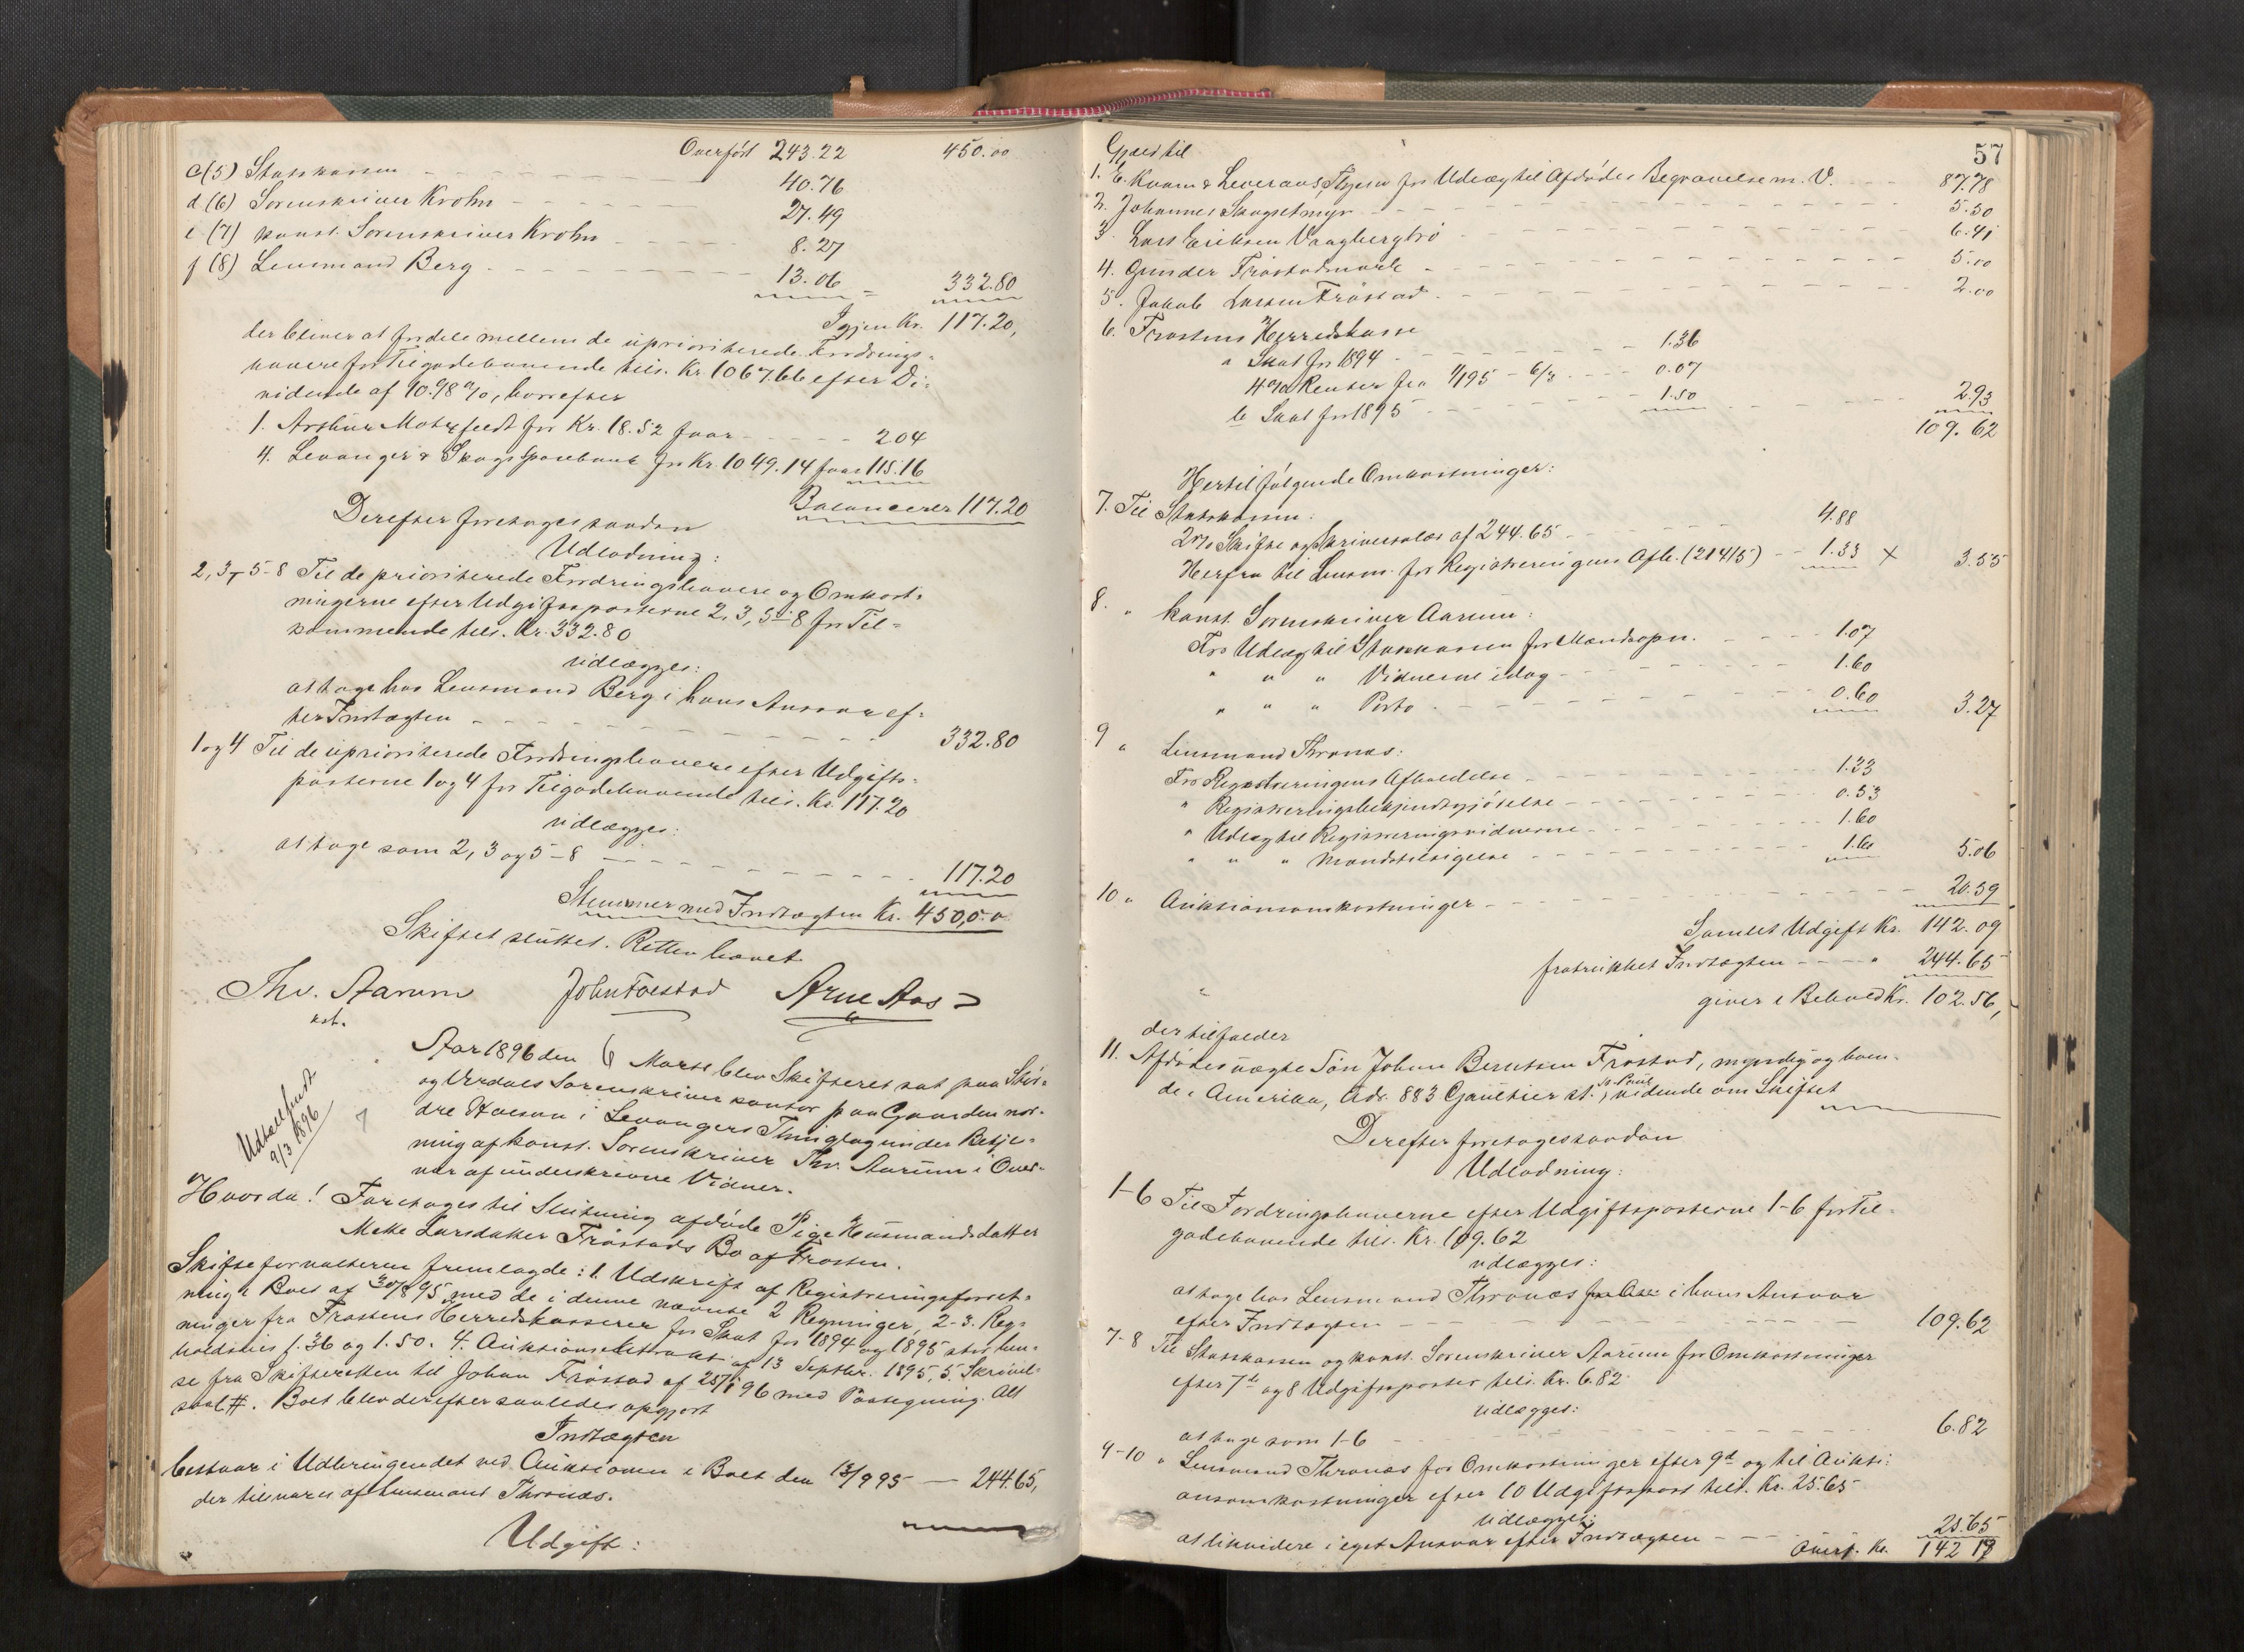 Overført 243.22 450.00
c (5) Statskassen 40.76
d (6) Sorenskriver Krohn 27.49
e (7) konst. Sorenskriver Krohn 8.27
f (8) Lensmand Berg 13.06 = 332.80
Igjen Kr. 117.20,
der bliver at fordele mellem de uprioriterede Fordrings-
havere for Tilgodehavende tils. Kr. 1067.66 efter Di-
vidende af 10.98 %, hvorefter
1. Arthur Motzfeldt for Kr. 18.52 faar 2.04
4. Levanger & Skogn Sparebank for Kr. 1049.14 faar 115.16
Balancerer 117.20
Derefter foretoges saadan
Udlodning:
2, 3, 5-8 Til de prioriterede Fordringshavere og Omkost-
ningerne efter Udgiftsposterne 2, 3, 5-8 for Til-
kommende tils. Kr. 332.80
udlægges:
at tage hos Lensmand Berg i hans Ansvar ef-
ter Indtægten 332.80
1 og 4 Til de uprioriterede Fordringshavere efter Udgifts-
posterne 1 og 4 for Tilgodehavende tils. Kr. 117.20
udlægges:
at tage som 2, 3 og 5-8 117.20
Stemmer med Indtægten Kr. 450,00
Skiftet sluttet. Retten hævet
Thv. Aarum John Foestad Arne Aas
kst.
Udskrift sendt
9/3 1896
Aar 1896 den 6 Marts blev Skifteret sat paa Stør-
og Værdals Sorenskriverkontor paa Gaarden nor-
dre Staven i Levangers Thinglag under Betje-
ning af konst. Sorenskriver Thv. Aarum i Over-
vær af underskrevne Vidner.
Hvorda! Foretoges til Slutning afdøde Pige Husmandsdatter
Mette Larsdatter Frøstads Bo af Frosten.
Skifteforvalteren fremlagde: 1. Udskrift af Registreringsforret-
ning i Boet af 30/8 95 med de i denne nævnte 2 Regninger, 2-3. Reg-
ninger fra Frostens Herredskasserer for Skat for 1894 og 1895 stor hen-
holdsvis 1.36 og 1.50. 4. Auktionsextrakt af 13 Septbr. 1895, 5. Skrivel-
se fra Skifteretten til Johan Frøstad af 25/1 96 med Paategning. Alt
saal #. Boet blev derefter saaledes opgjort
Indtægten
bestaar i Udbringendet ved Auktionen i Boet den 13/9 95 — 244.65,
der tilsvares af Lensmand Thronæs.
Udgift:
57
Gjæld til
1. E. Kvam & Leverans, Thyern for Udlæg til Afdødes Begravelse m. V. 87.78
2. Johannes Skogsetmyr 5.50
3. Lars Eriksen Vaagbergtrø 6.41
4. Gunder Frøstadmark 5.00
5. Jakob Larsen Frøstad 2.00
6. Frostens Herredskasse
a Skat for 1894 1.36
4 % Renter fra 1/1 95 - 6/3 0.07
b Skat for 1895 1.50 2.93
109.62
Hertil følgende Omkostninger:
7. Til Statskassen:
2 % Skifte og Skriversalær af 244.65 4.88
Herfra til Lensm. for Registreringens Afh. (214/5) 1.33 x 3.55
8. " konst. Sorenskriver Aarum:
For Udlæg til Statskassen for Mandsopn. 1.07
" " " Vidnerne idag 1.60
" " " Porto 0.60 3.27
9 " Lensmand Thronæs:
For Registreringens Afholdelse 1.33
" Registreringsbekjendtgjørelse 0.53
" Udlæg til Registreringsvidnerne 1.60
" " " Mandstilsigelse 1.60 5.06
10 " Auktionsomkostninger 20.59
Samlet Udgift Kr. 142.09
fratrukket Indtægten " 244.65
giver i Behold Kr. 102.56,
der tilfalder
11. Afdødes uægte Søn Johan Berntsen Frøstad, myndig og boen-
de i Amerika, Adr. 883 Gaultier st. St. Paul, vidende om Skiftet
Derefter foretoges saadan
Udlodning:
1-6 Til Fordringshaverne efter Udgiftsposterne 1-6 for Til-
godehavende tils. Kr. 109.62
udlægges:
at tage hos Lensmand Thronæs i hans Ansvar
efter Indtægten 109.62
7-8 Til Statskassen og konst. Sorenskriver Aarum for Omkostninger
efter 7de og 8 Udgiftsposter tils. Kr. 6.82
udlægges:
at tage som 1-6 6.82
9-10 " Lensmand Thronæs for Omkostninger efter 9de og til Aukti-
onsomkostninger efter 10 Udgiftspost tils. Kr. 25.65
udlægges:
at likvidere i eget Ansvar efter Indtægten 25.65
Overf. Kr. 142